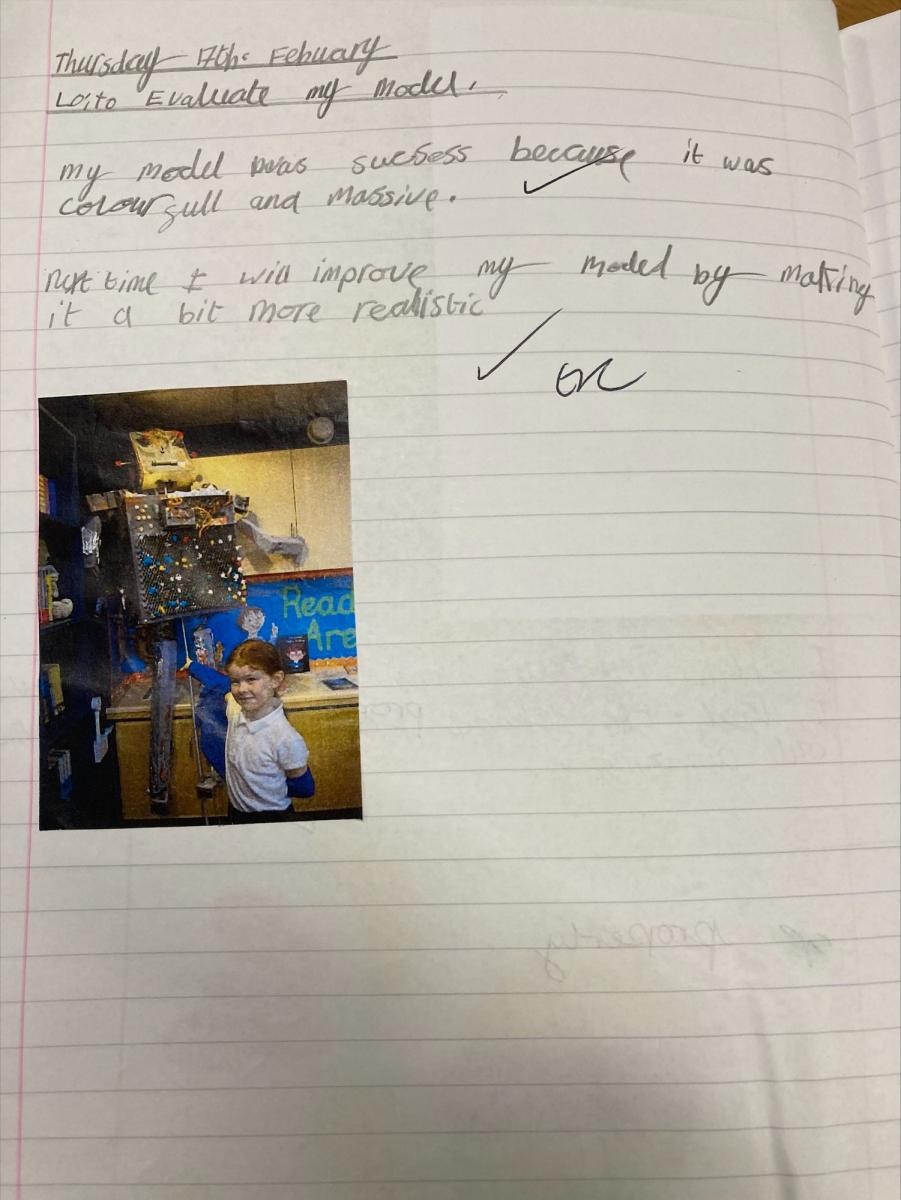 Thursday 17th. Febuary
Lo: to Evaluate my model.
my model was sucsess because it was
colourfull and massive.
next time I will improve my model by making
it a bit more realistic
Read
Are
property